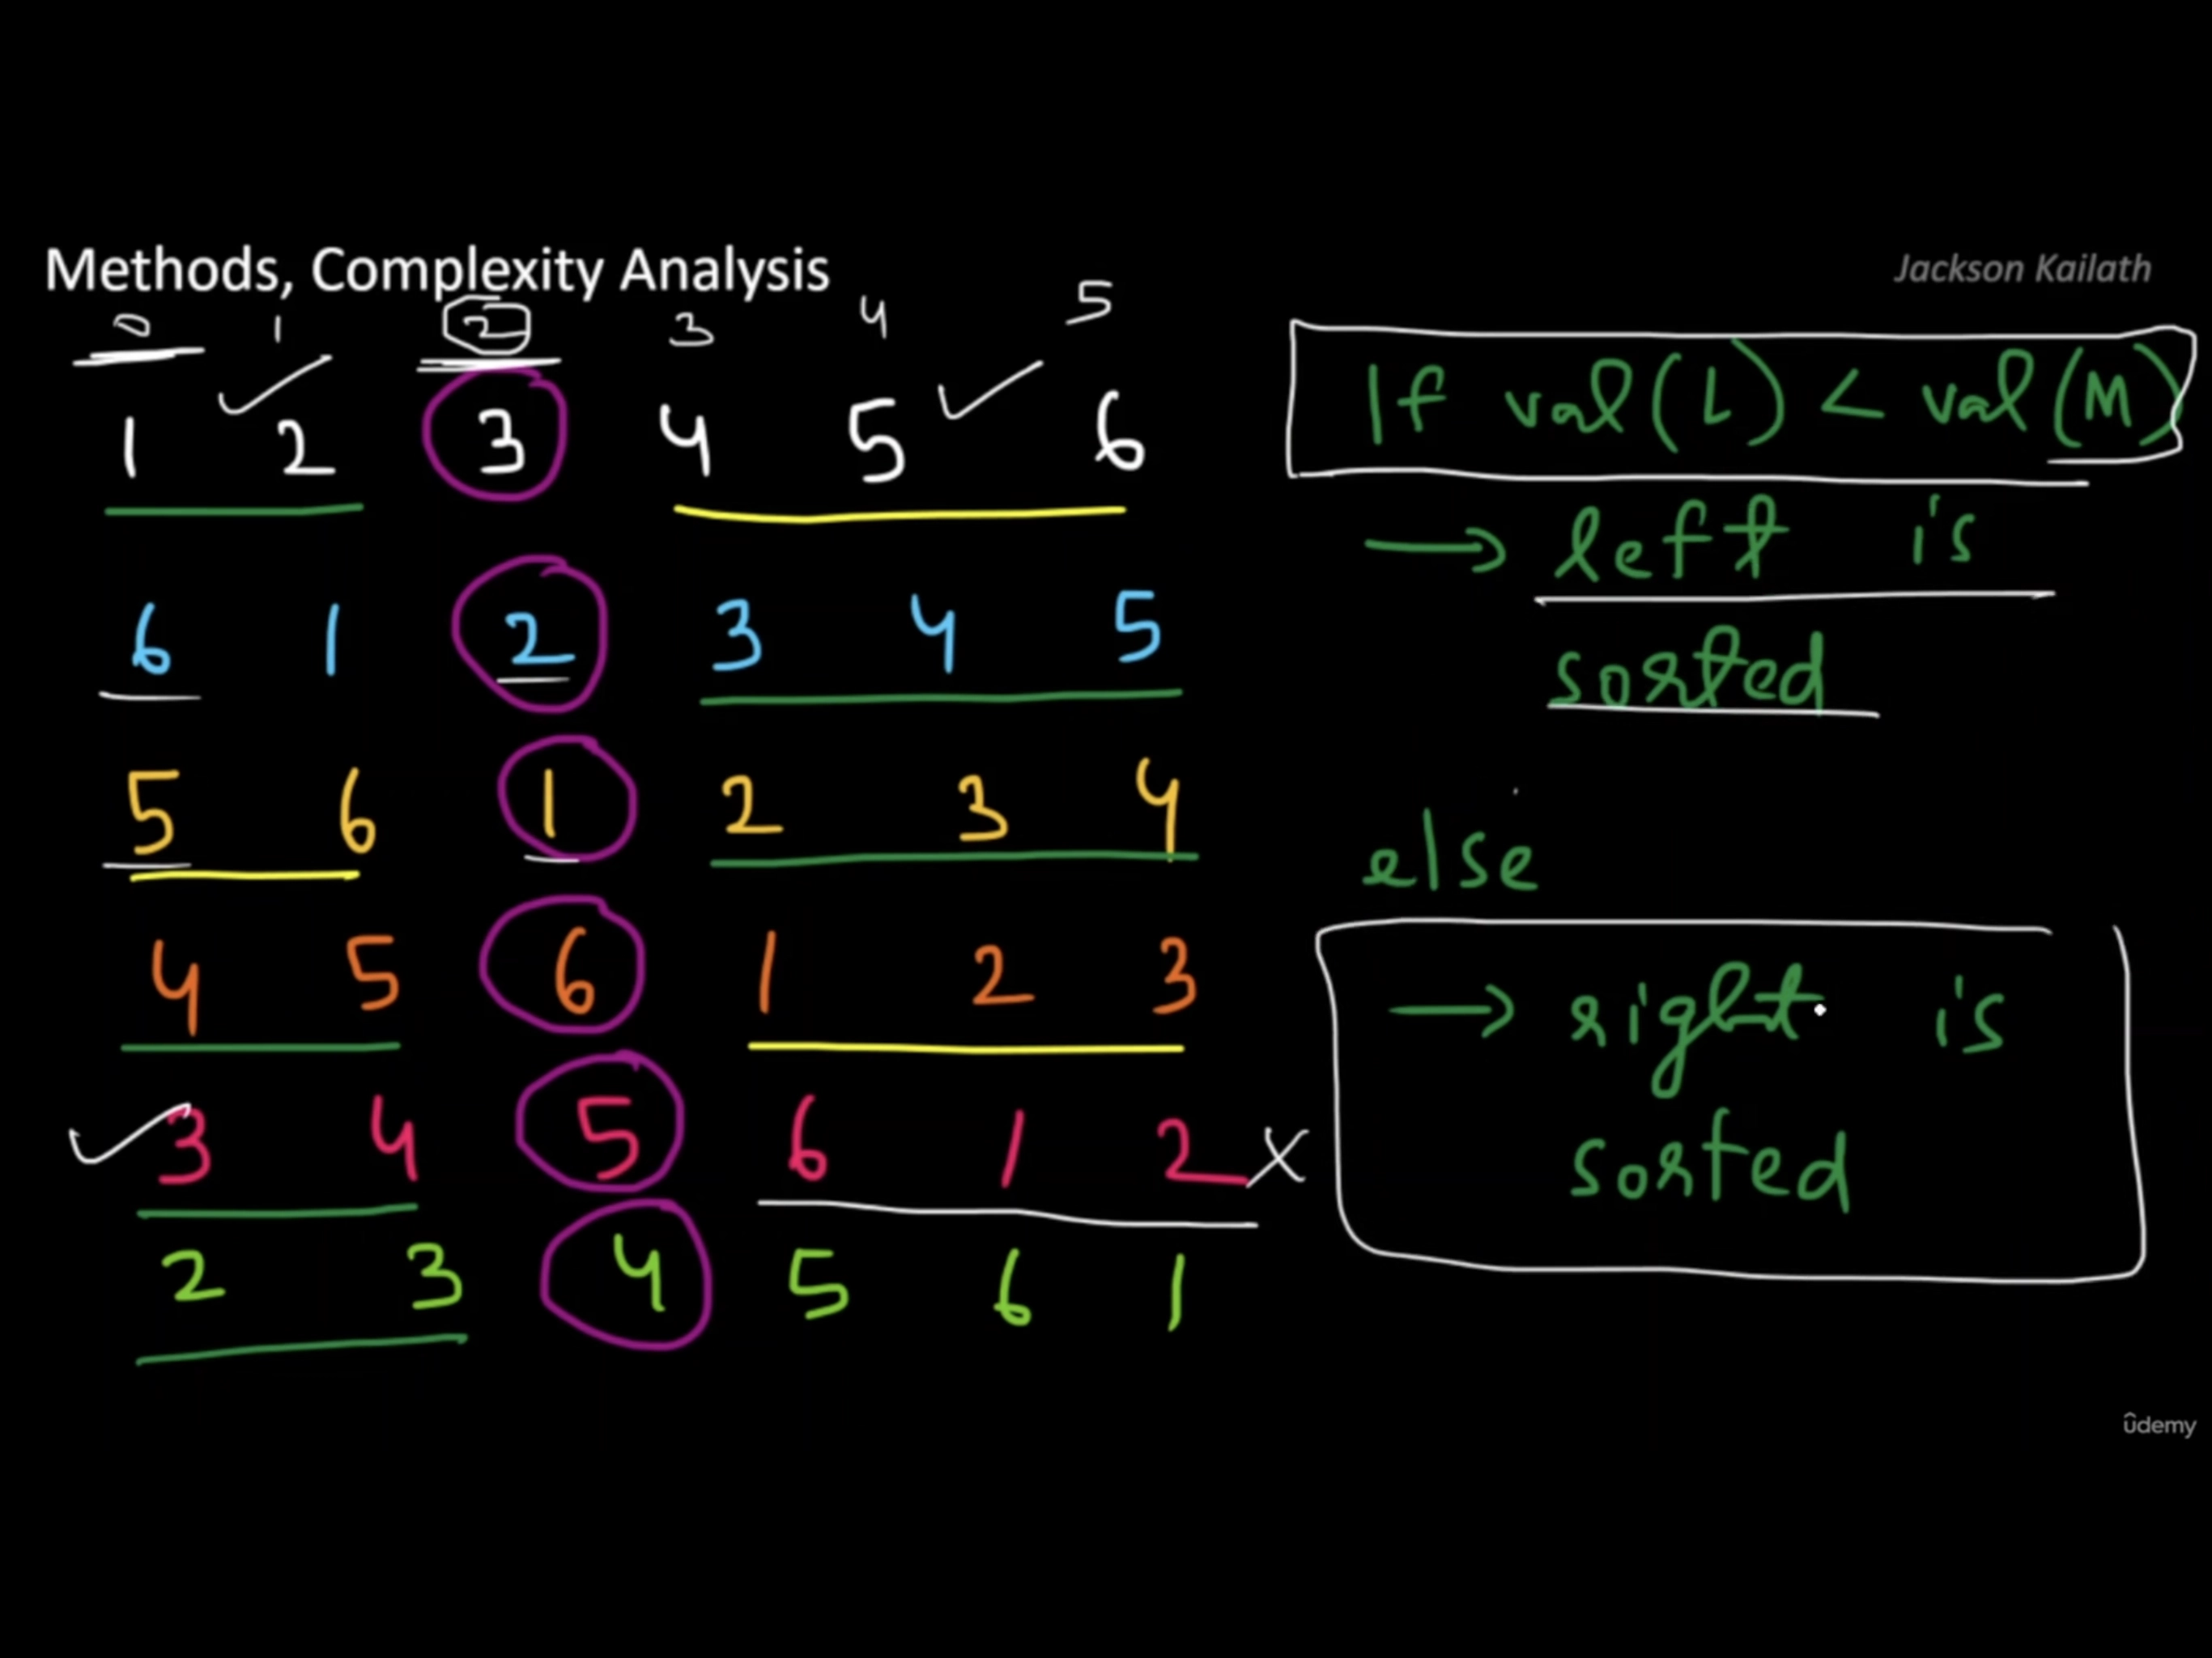 Methods, Complexity Analysis
Jackson Kailath
0 1 2 3 4 5
1 2 3 4 5 6
6 1 2 3 4 5
5 6 1 2 3 4
4 5 6 1 2 3
3 4 5 6 1 2 x
2 3 4 5 6 1
If val(L) < val(M)
→ left is
sorted
else
→ right is
sorted
ûdemy